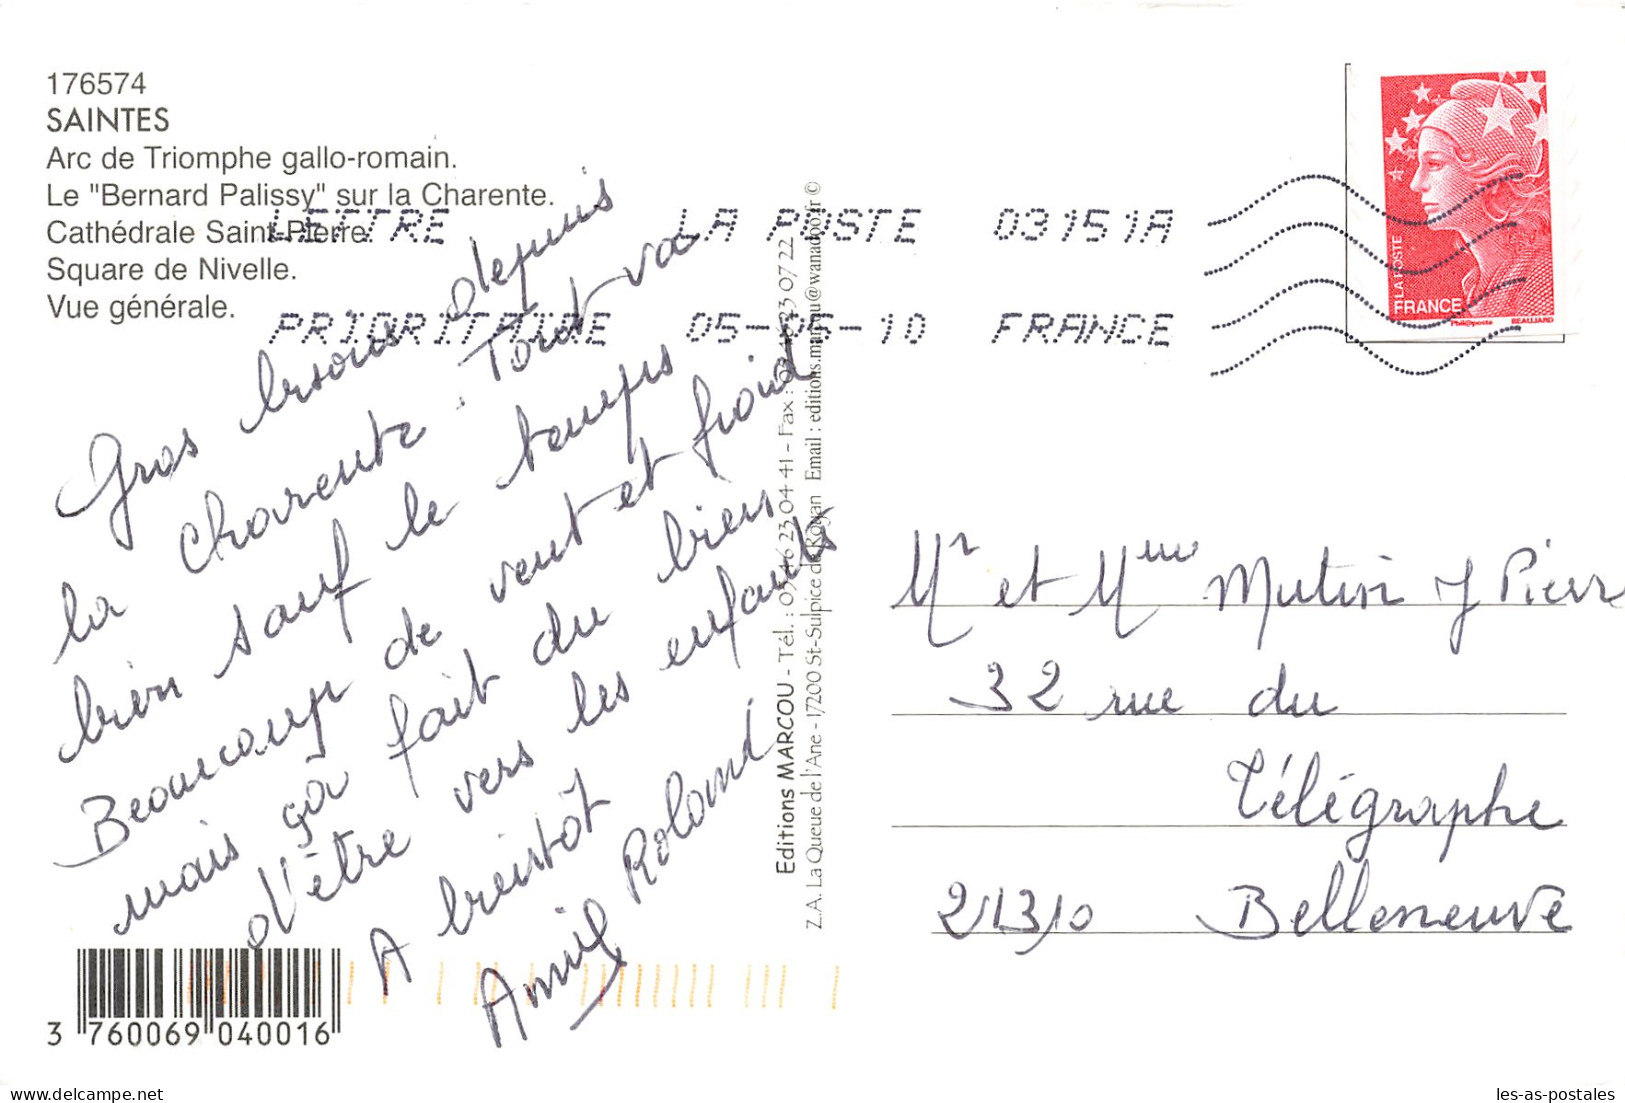 176574
SAINTES
Arc de Triomphe gallo-romain.
Le "Bernard Palissy" sur la Charente.
Cathédrale Saint-Pierre.
Square de Nivelle.
Vue générale.
LETTRE LA POSTE 03151A
PRIORITAIRE 05-05-10 FRANCE
LA POSTE
FRANCE
Phil@poste
BEAUJARD
Gros bisous depuis
la Charente. Tout va
bien sauf le temps
Beaucoup de vent et froid
mais ça fait du bien
d'être vers les enfants
A bientôt
Roland
Editions MARCOU - Tél. : 05 46 23 04 41 - Fax : 05 46 23 07 22
Z.A. La Queue de l'Ane - 17200 St-Sulpice de Royan Email : editions.marcou@wanadoo.fr ©
Mr et Mme Mutin J Pierre
32 rue du
Télégraphe
21310 Belleneuve
3 760069 040016
delcampe.net
les-as-postales